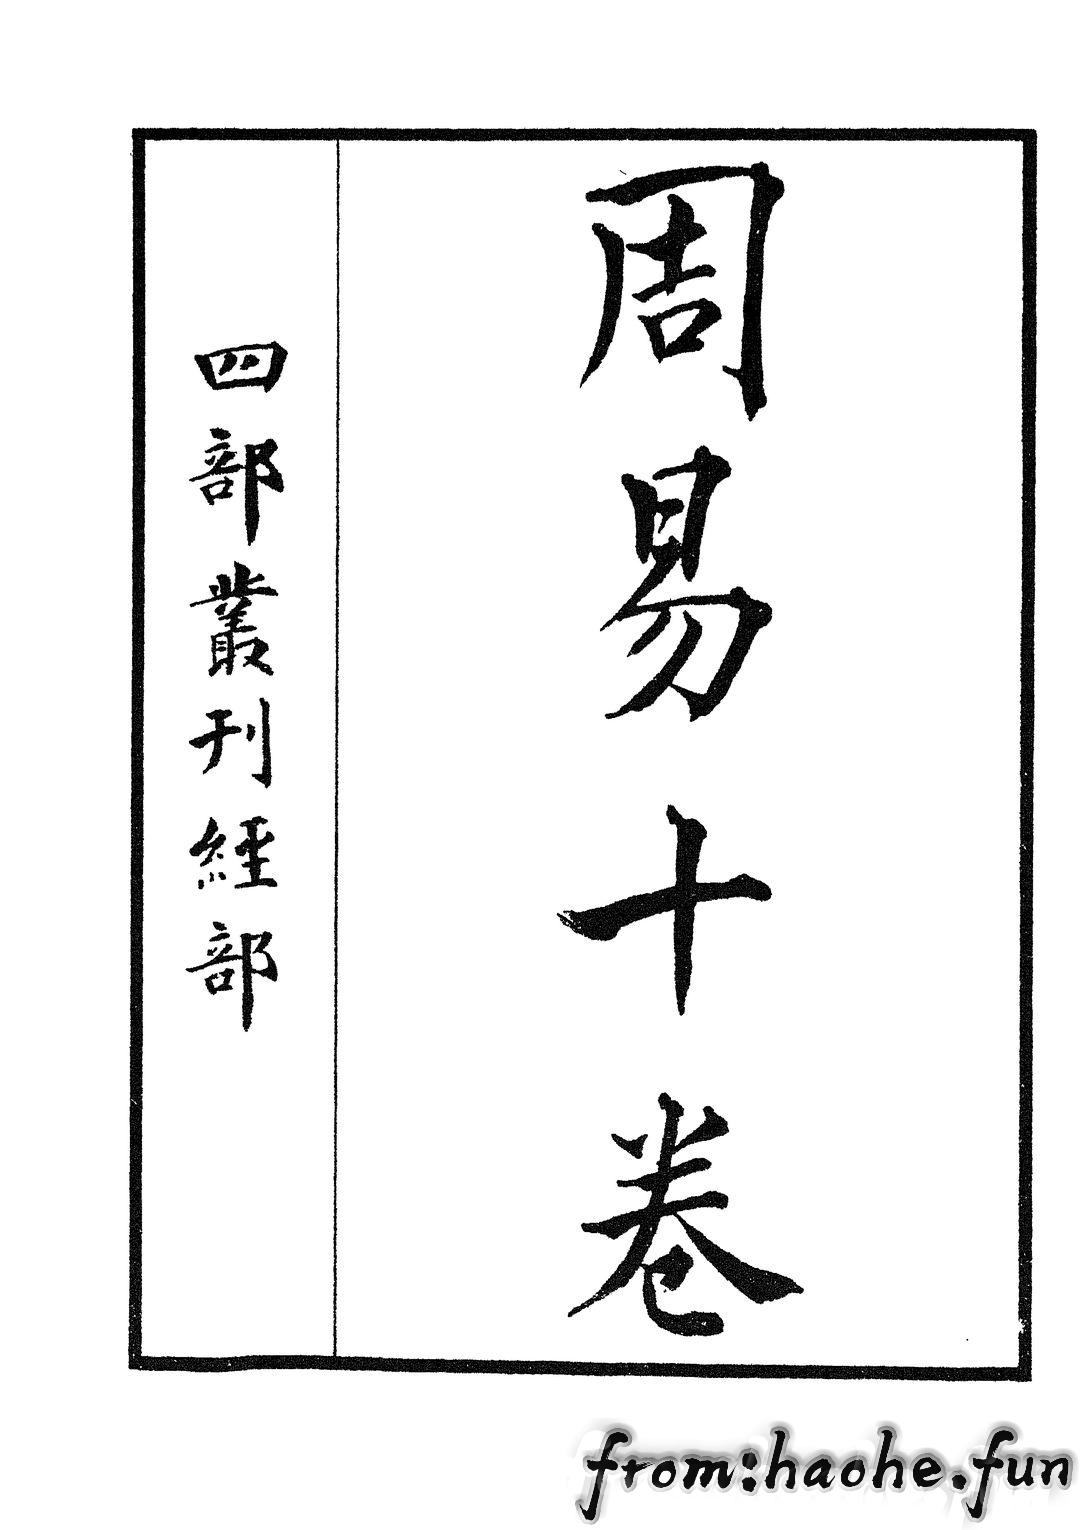 周易十卷
四部叢刊經部
from:haohe.fun